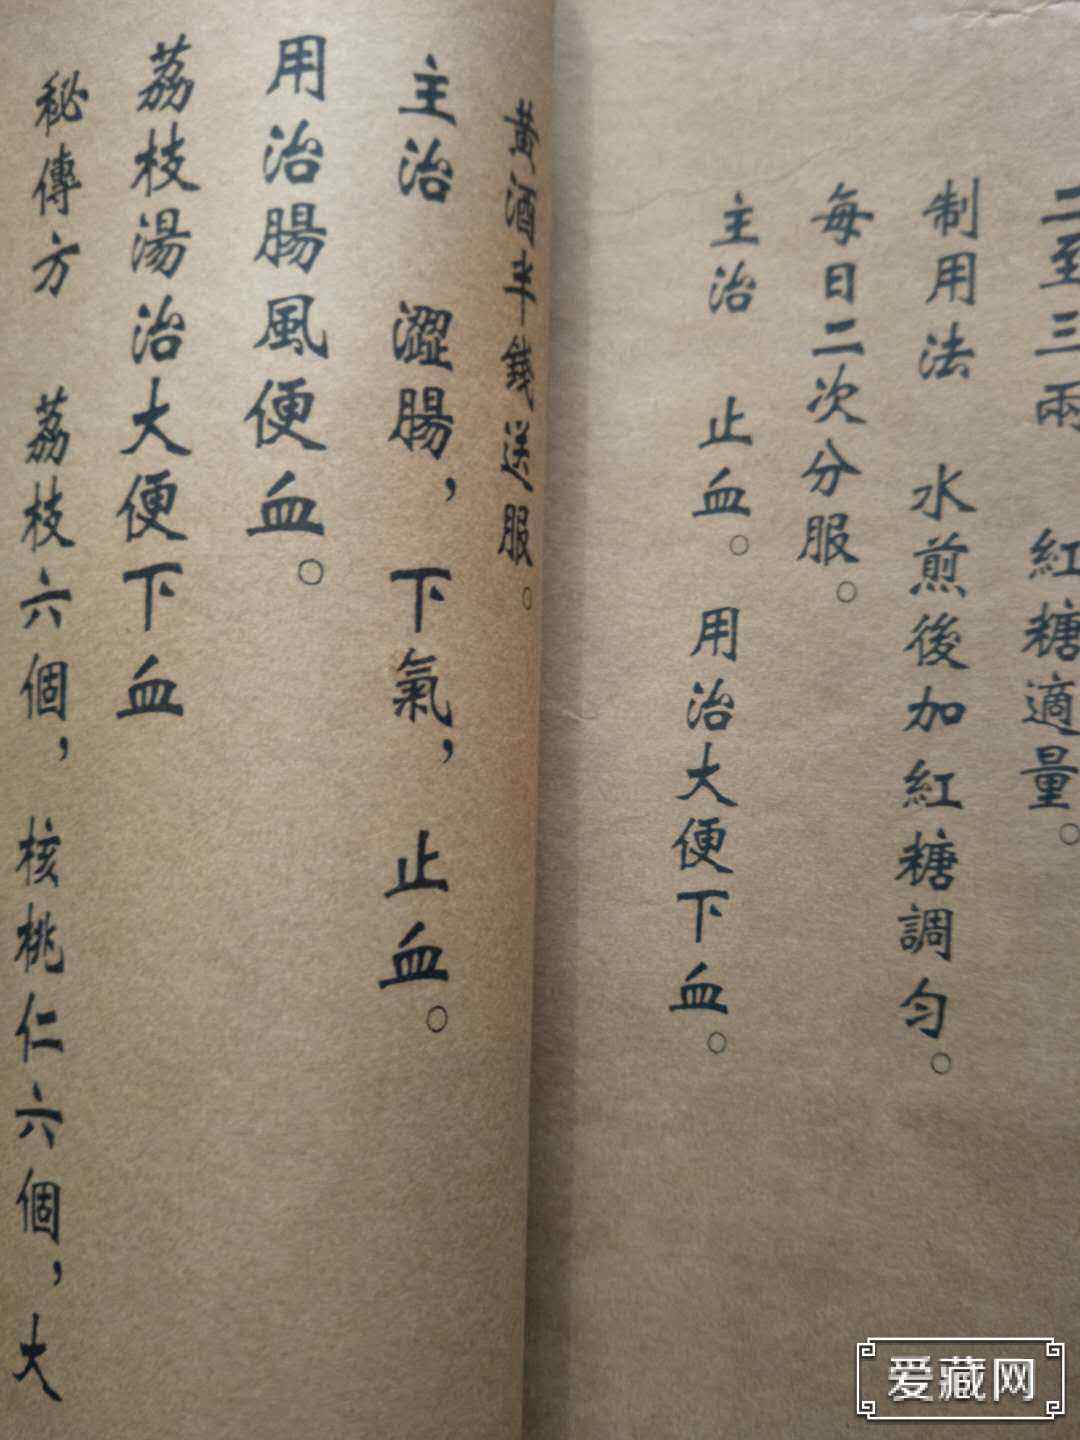 二至三兩　紅糖適量。
制用法　水煎後加紅糖調匀。
每日二次分服。
主治　止血。用治大便下血。
黄酒半錢送服。
主治　澀腸，下氣，止血。
用治腸風便血。
荔枝湯治大便下血
秘傳方　荔枝六個，核桃仁六個，大
爱藏网